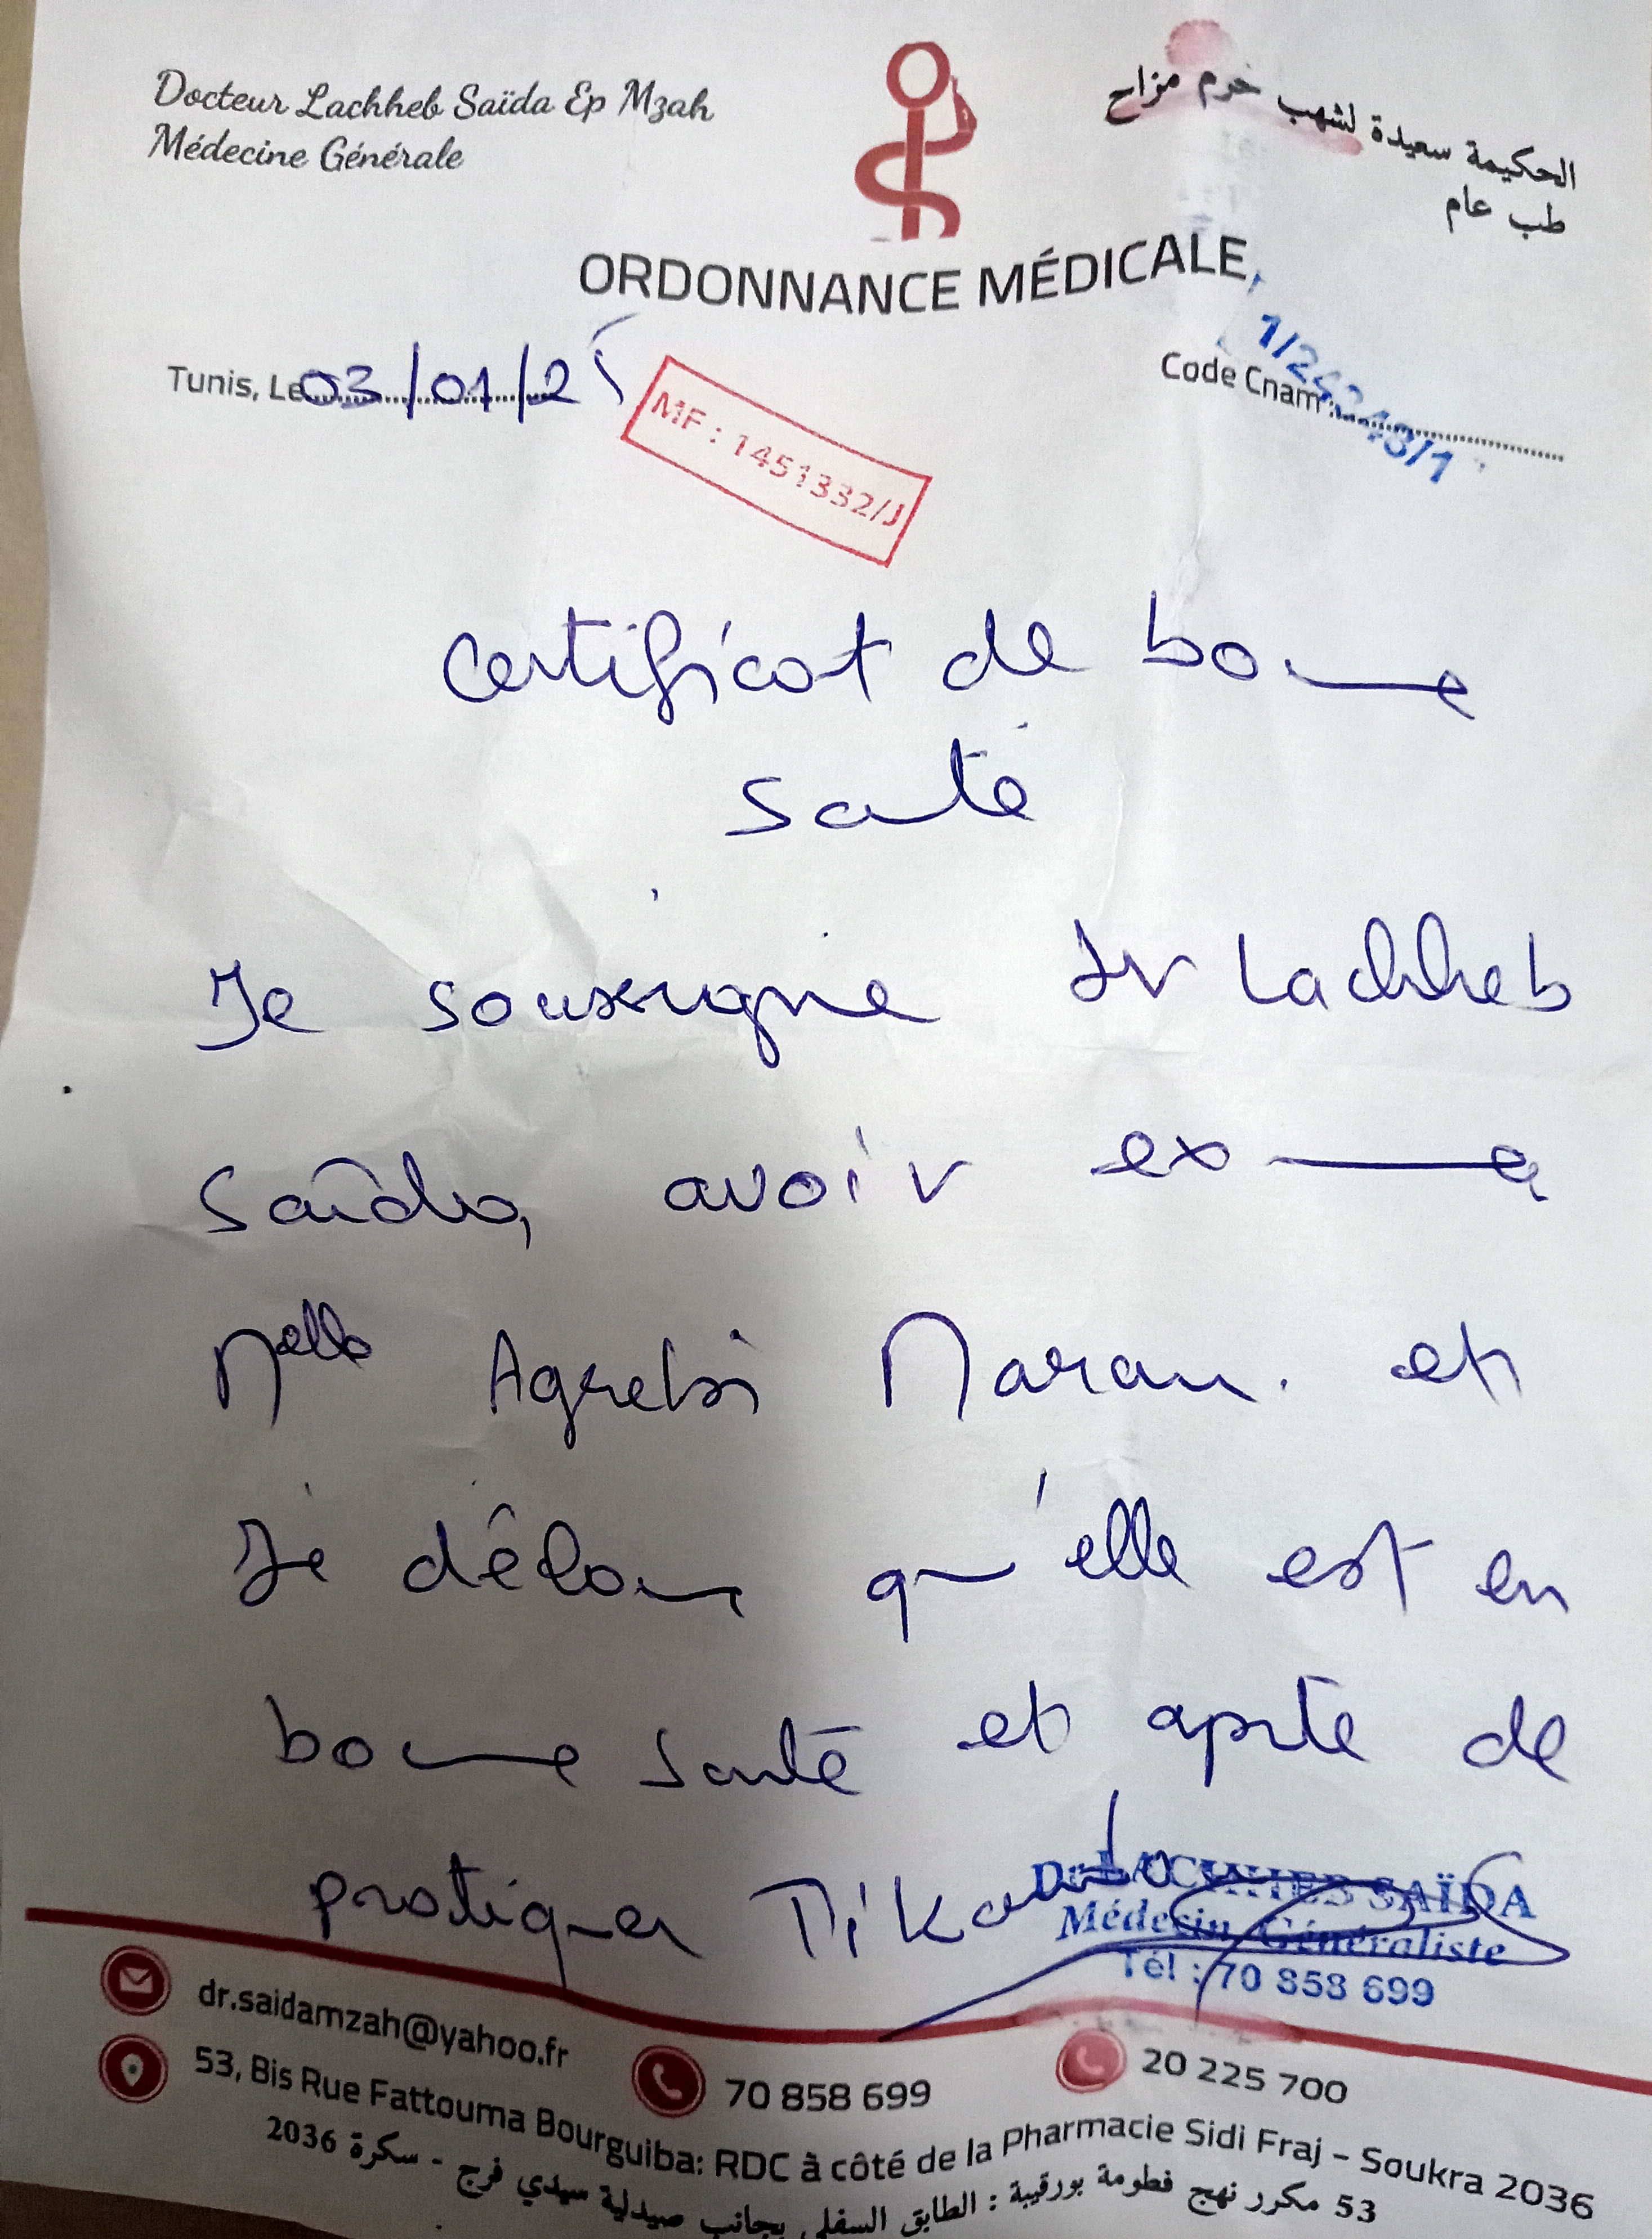 Docteur Lachheb Saïda Ep Mzah
Médecine Générale
الحكيمة سعيدة لشهب حرم مزاح
طب عام
ORDONNANCE MÉDICALE
Tunis, Le 03/01/25
Code Cnam :
MF : 1451332/J
Certificat de bonne
santé
Je soussigne Dr Lachheb
Saïda, avoir examine
Melle Agrebi Maram. et
Je déclare qu'elle est en
bonne santé et apte de
pratiquer
Dr LACHHEB SAÏDA
Médecin Généraliste
Tél : 70 858 699
dr.saidamzah@yahoo.fr
70 858 699
20 225 700
53, Bis Rue Fattouma Bourguiba: RDC à côté de la Pharmacie Sidi Fraj - Soukra 2036
53 مكرر نهج فطومة بورقيبة : الطابق السفلي بجانب صيدلية سيدي فرج - سكرة 2036